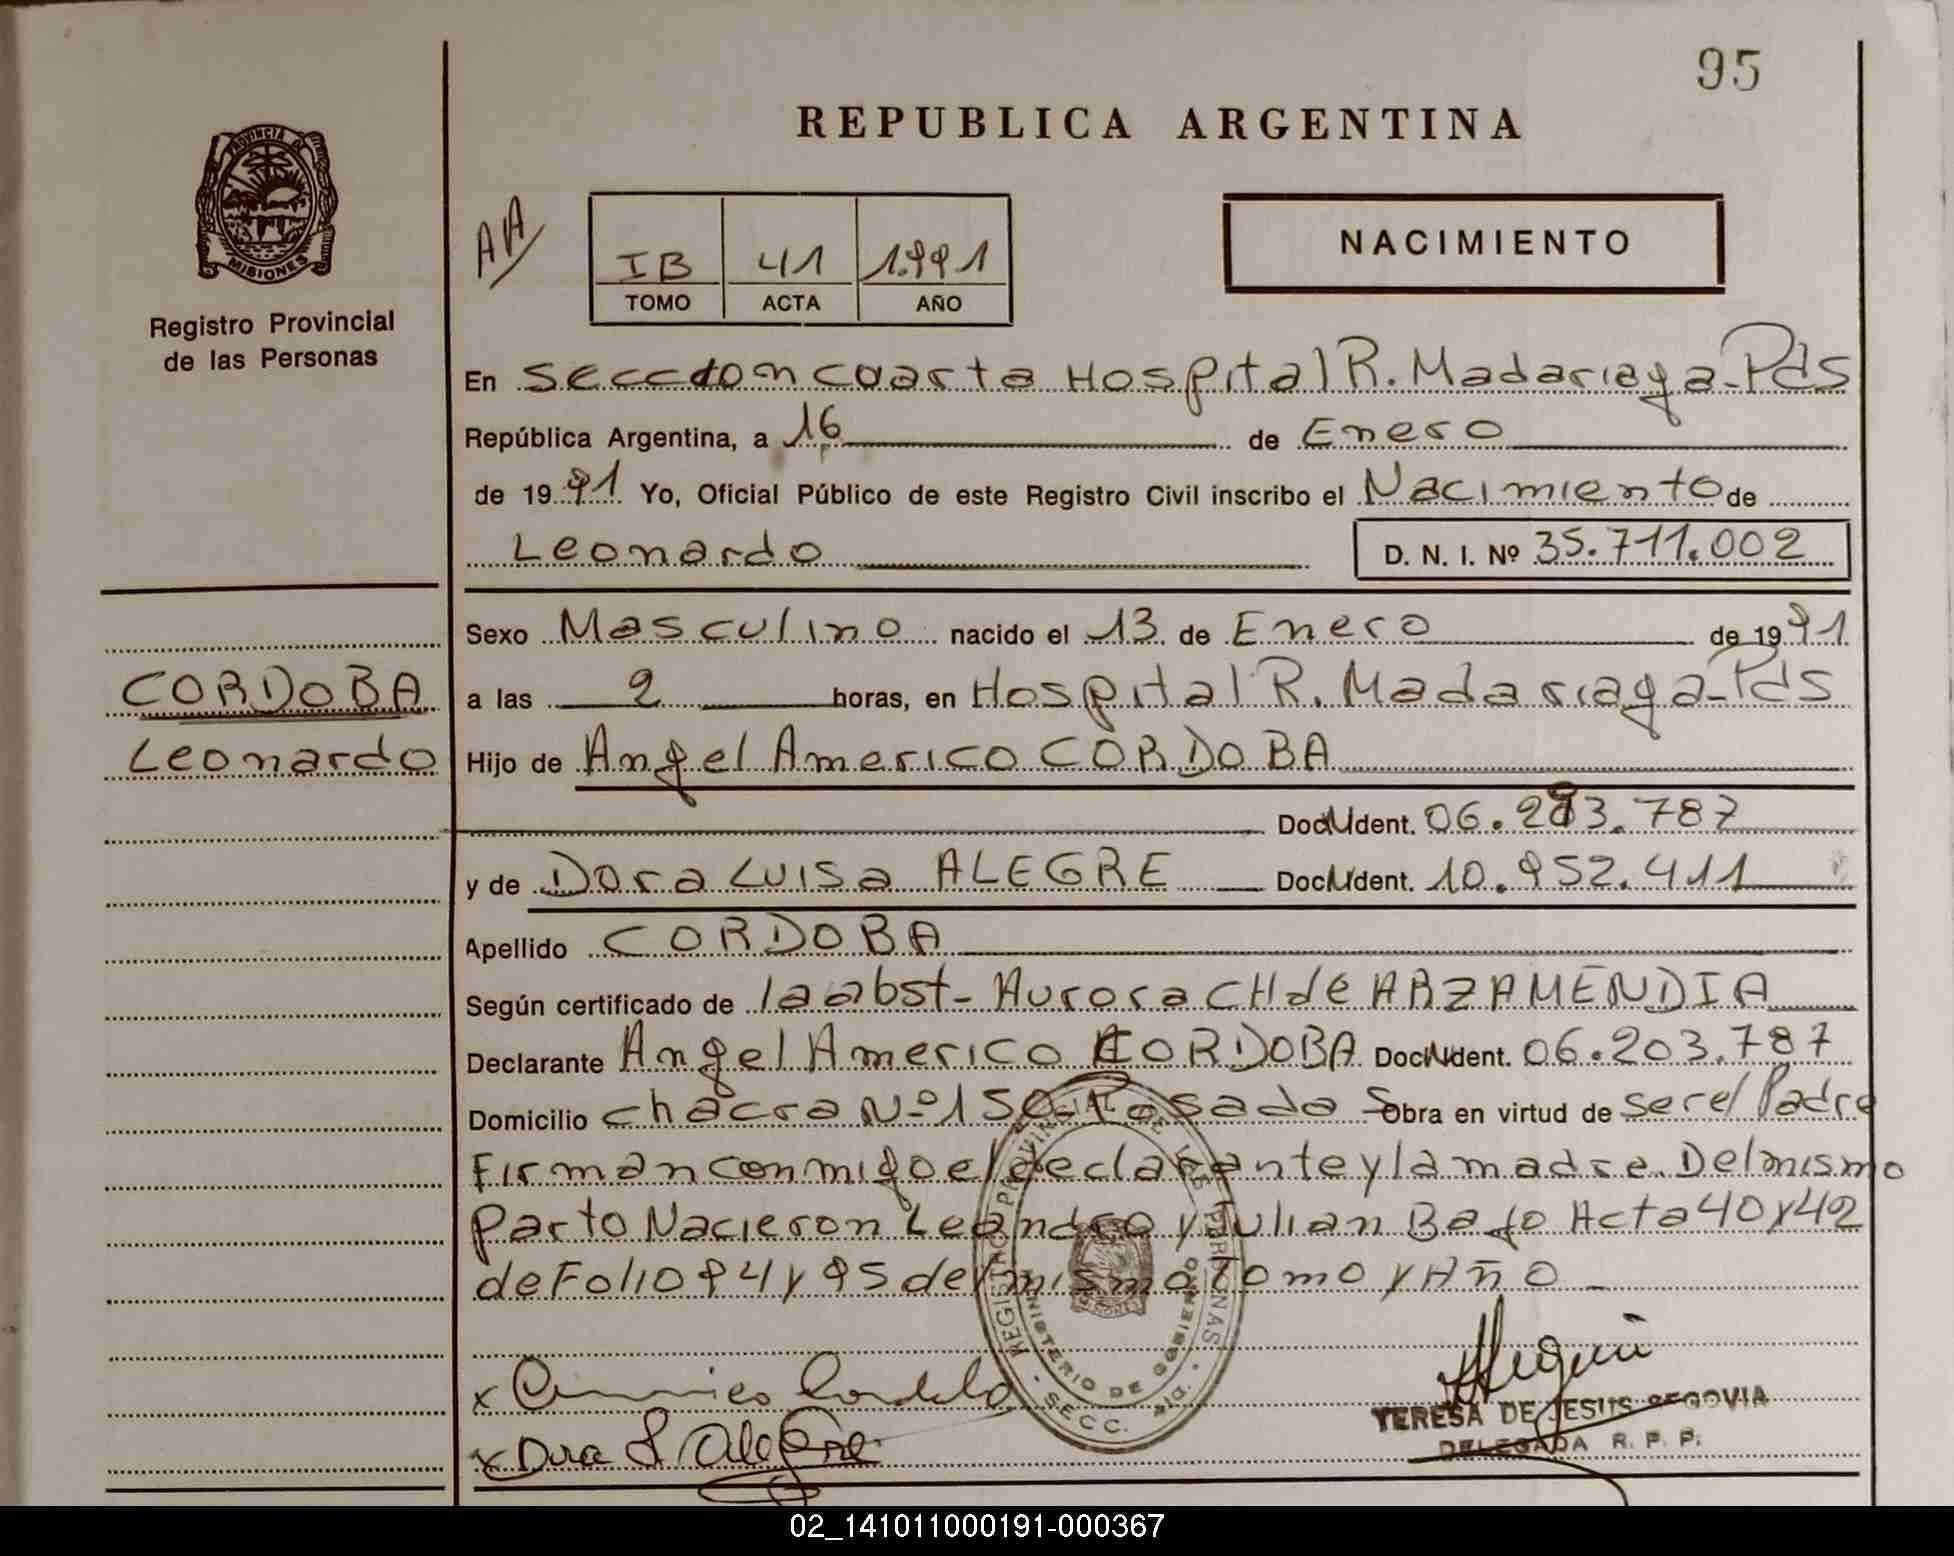 95
REPUBLICA ARGENTINA
PROVINCIA DE
MISIONES
Registro Provincial
de las Personas
AA
IB 41 1.991
TOMO ACTA AÑO
NACIMIENTO
En Seccion cuarta Hospital R. Madariaga-Pds
República Argentina, a 16 de Enero
de 1991 Yo, Oficial Público de este Registro Civil inscribo el Nacimiento de
Leonardo D. N. I. Nº 35.711.002
Sexo Masculino nacido el 13 de Enero de 1991
CORDOBA
Leonardo
a las 2 horas, en Hospital R. Madariaga-Pds
Hijo de Angel Americo CORDOBA
Doc. Ident. 06.203.787
y de Dora Luisa ALEGRE Doc. Ident. 10.952.411
Apellido CORDOBA
Según certificado de la obst- Aurora CH de ARZAMENDIA
Declarante Angel Americo CORDOBA Doc. Ident. 06.203.787
Domicilio chacra Nº 150-Posada S obra en virtud de ser el Padre
Firman conmigo el declarante y la madre. Del mismo
parto Nacieron Leandro y Julian Bajo Acta 40 y 42
de Folio 94 y 95 del mismo Tomo y Año
REGISTRO PROVINCIAL DE LAS PERSONAS
MINISTERIO DE GOBIERNO
SECC.
x Americo Cordoba
x Dora L Alegre
TERESA DE JESUS SEGOVIA
DELEGADA R. P. P.
02_141011000191-000367